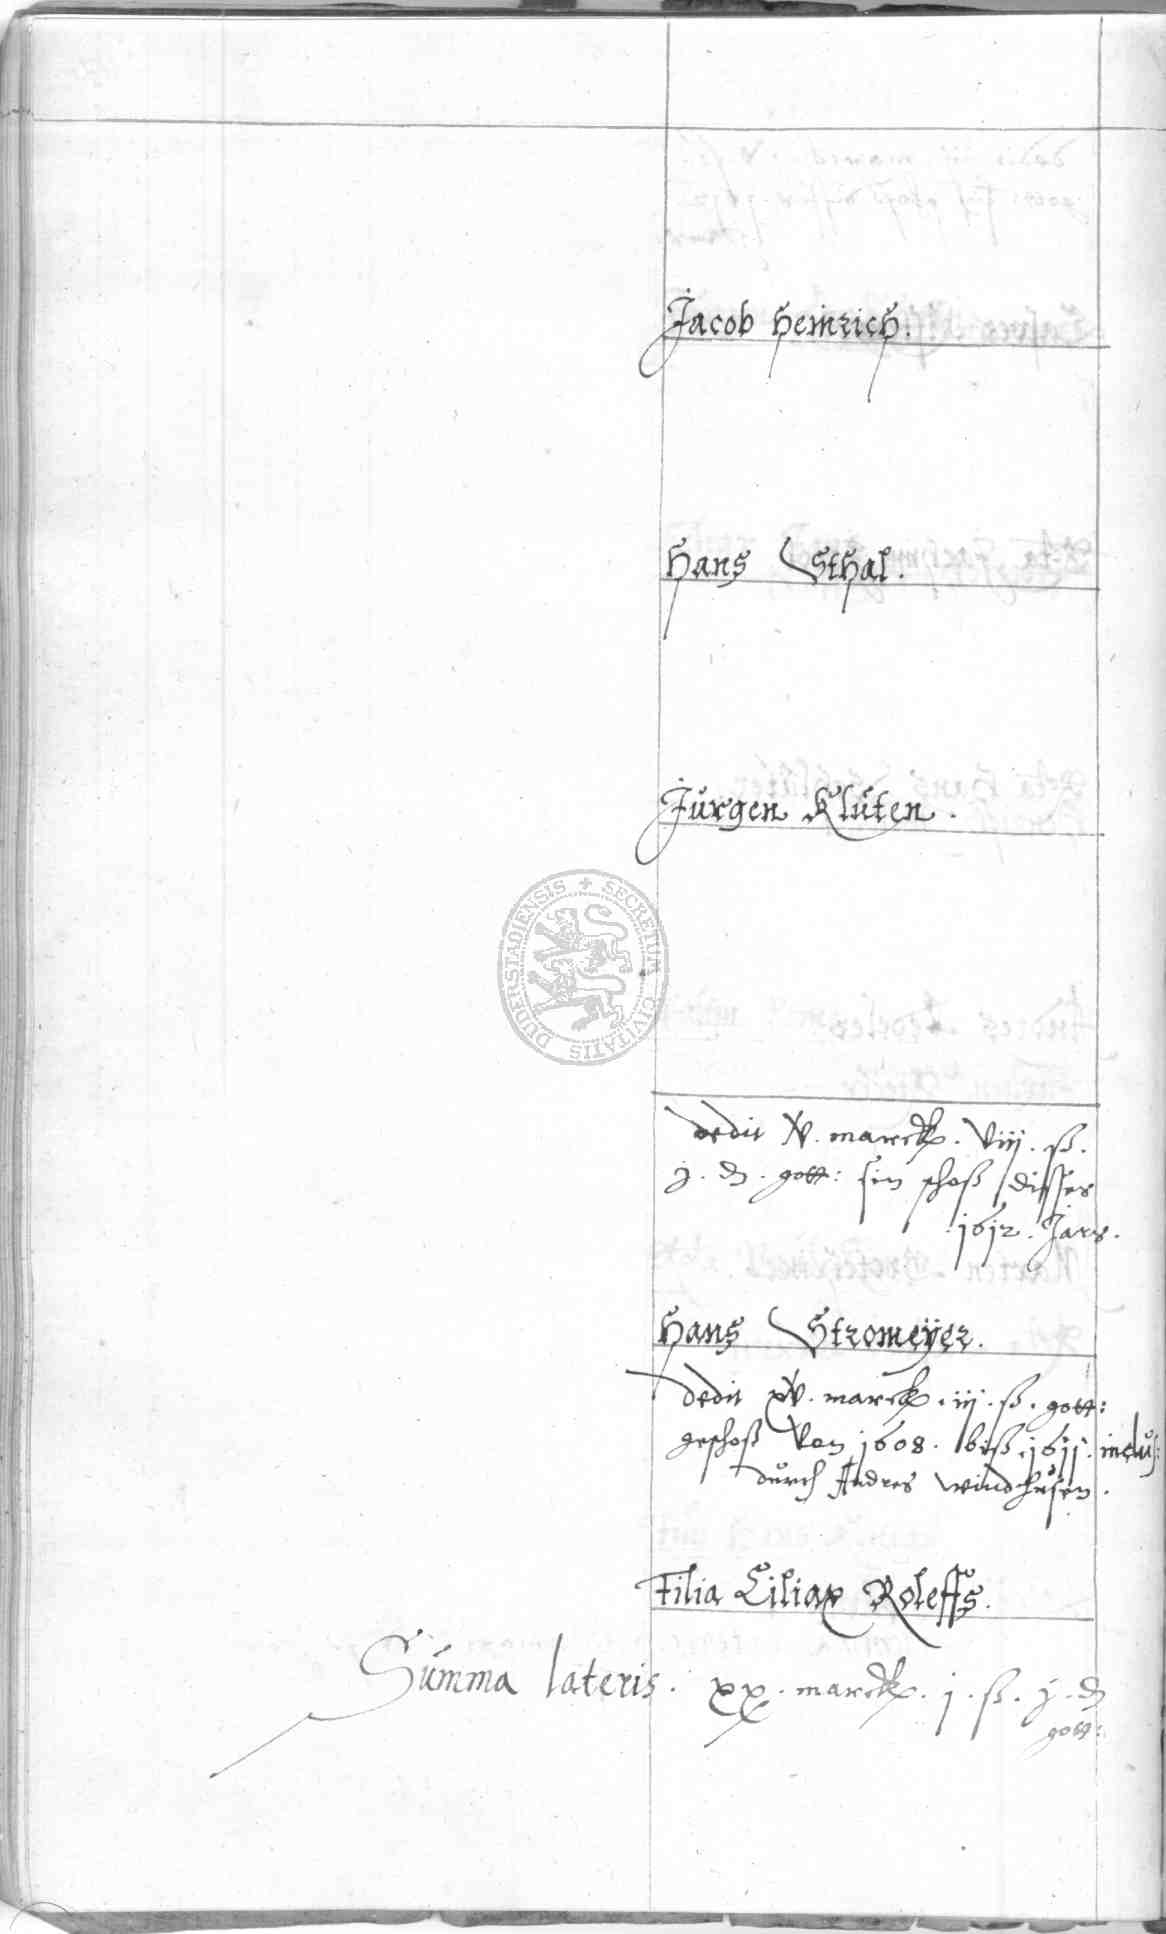 Jacob Heinrich.
Hans Sthal.
Jürgen Klüten.
SECRETUM CIVITATIS DUDERSTADIENSIS
dedit v. marck. viij. ß.
j. d. gott: sin schoß disses
1612. Jars.
Hans Stromeÿer.
dedit xv. marck. iij. ß. gott:
geschoß von 1608. biß 1611. inclus:
durch Andres windhusen.
Filia Ciliax Roleffs.
Summa lateris. xx. marck. j. ß. j. d
gott: